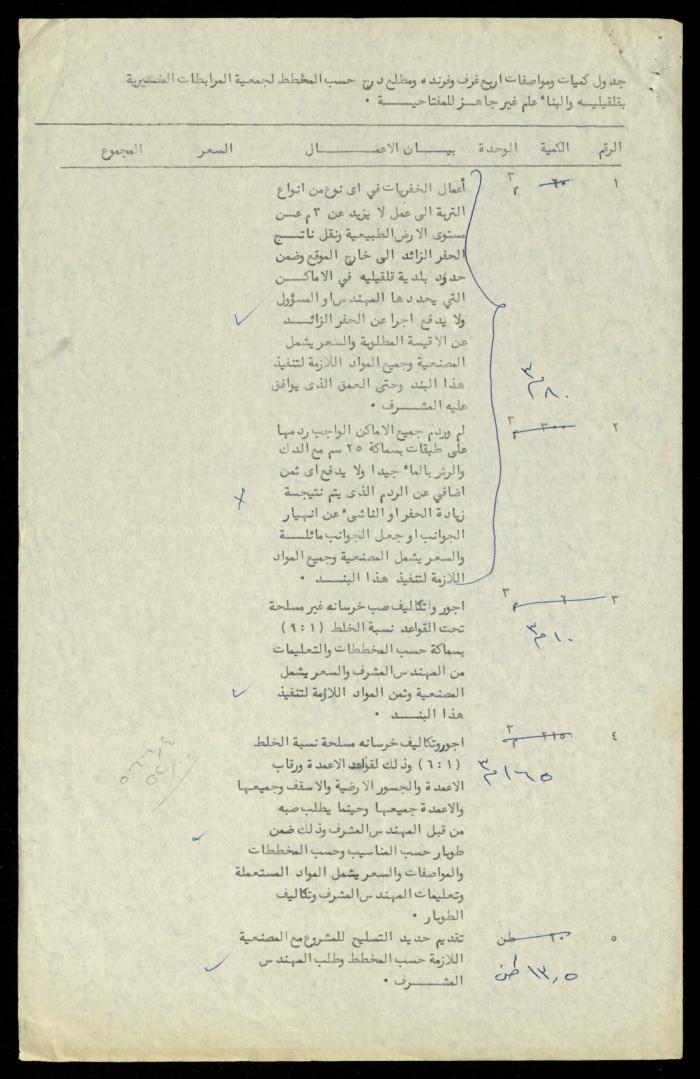 جدول كميات ومواصفات اربع غرف وفرنده ومطلع درج حسب المخطط لجمعية المرابطات الخيرية
بقلقيليه والبناء علم غير جاهز للمفتاحية ٠
الرقم الكمية الوحدة بيان الاعمال السعر المجموع
١ ٦٠ م٣ أعمال الحفريات في اى نوع من انواع
التربة الى عمل لا يزيد عن ٣م عن
مستوى الارض الطبيعية ونقل ناتج
الحفر الزائد الى خارج الموقع وضمن
حدود بلدية قلقيليه في الاماكن
التي يحددها المهندس او المسؤول
ولا يدفع اجرا عن الحفر الزائد
عن الاقيسة المطلوبة والسعر يشمل
المصنعية وجميع المواد اللازمة لتنفيذ
٨٠م٣ هذا البند وحتى العمق الذى يوافق
عليه المشرف ٠
٢ ٣٠٠ م٣ لم وردم جميع الاماكن الواجب ردمها
على طبقات بسماكة ٢٥ سم مع الدك
والرش بالماء جيدا ولا يدفع اى ثمن
اضافي عن الردم الذى يتم نتيجة
زيادة الحفر او الناشىء عن انهيار
الجوانب او جعل الجوانب مائلة
والسعر يشمل المصنعية وجميع المواد
اللازمة لتنفيذ هذا البند ٠
٣ ٦ م٣ اجور وتكاليف صب خرسانه غير مسلحة
١٠م٣ تحت القواعد نسبة الخلط (٩:١)
بسماكة حسب المخططات والتعليمات
من المهندس المشرف والسعر يشمل
المصنعية وثمن المواد اللازمة لتنفيذ
هذا البند ٠
٤ ٢١٥ م٣ اجور وتكاليف خرسانه مسلحة نسبة الخلط
١٦٥م٣ (٦:١) وذلك لقواعد الاعمدة ورقاب
الاعمدة والجسور الارضية والاسقف وجميعها
والاعمدة جميعها وحينما يطلب صبه
من قبل المهندس المشرف وذلك ضمن
طوبار حسب المناسيب وحسب المخططات
والمواصفات والسعر يشمل المواد المستعملة
وتعليمات المهندس المشرف وتكاليف
الطوبار ٠
٥ ٢٠ طن تقديم حديد التسليح للمشروع مع المصنعية
١٣٫٥ طن اللازمة حسب المخطط وطلب المهندس
المشرف ٠